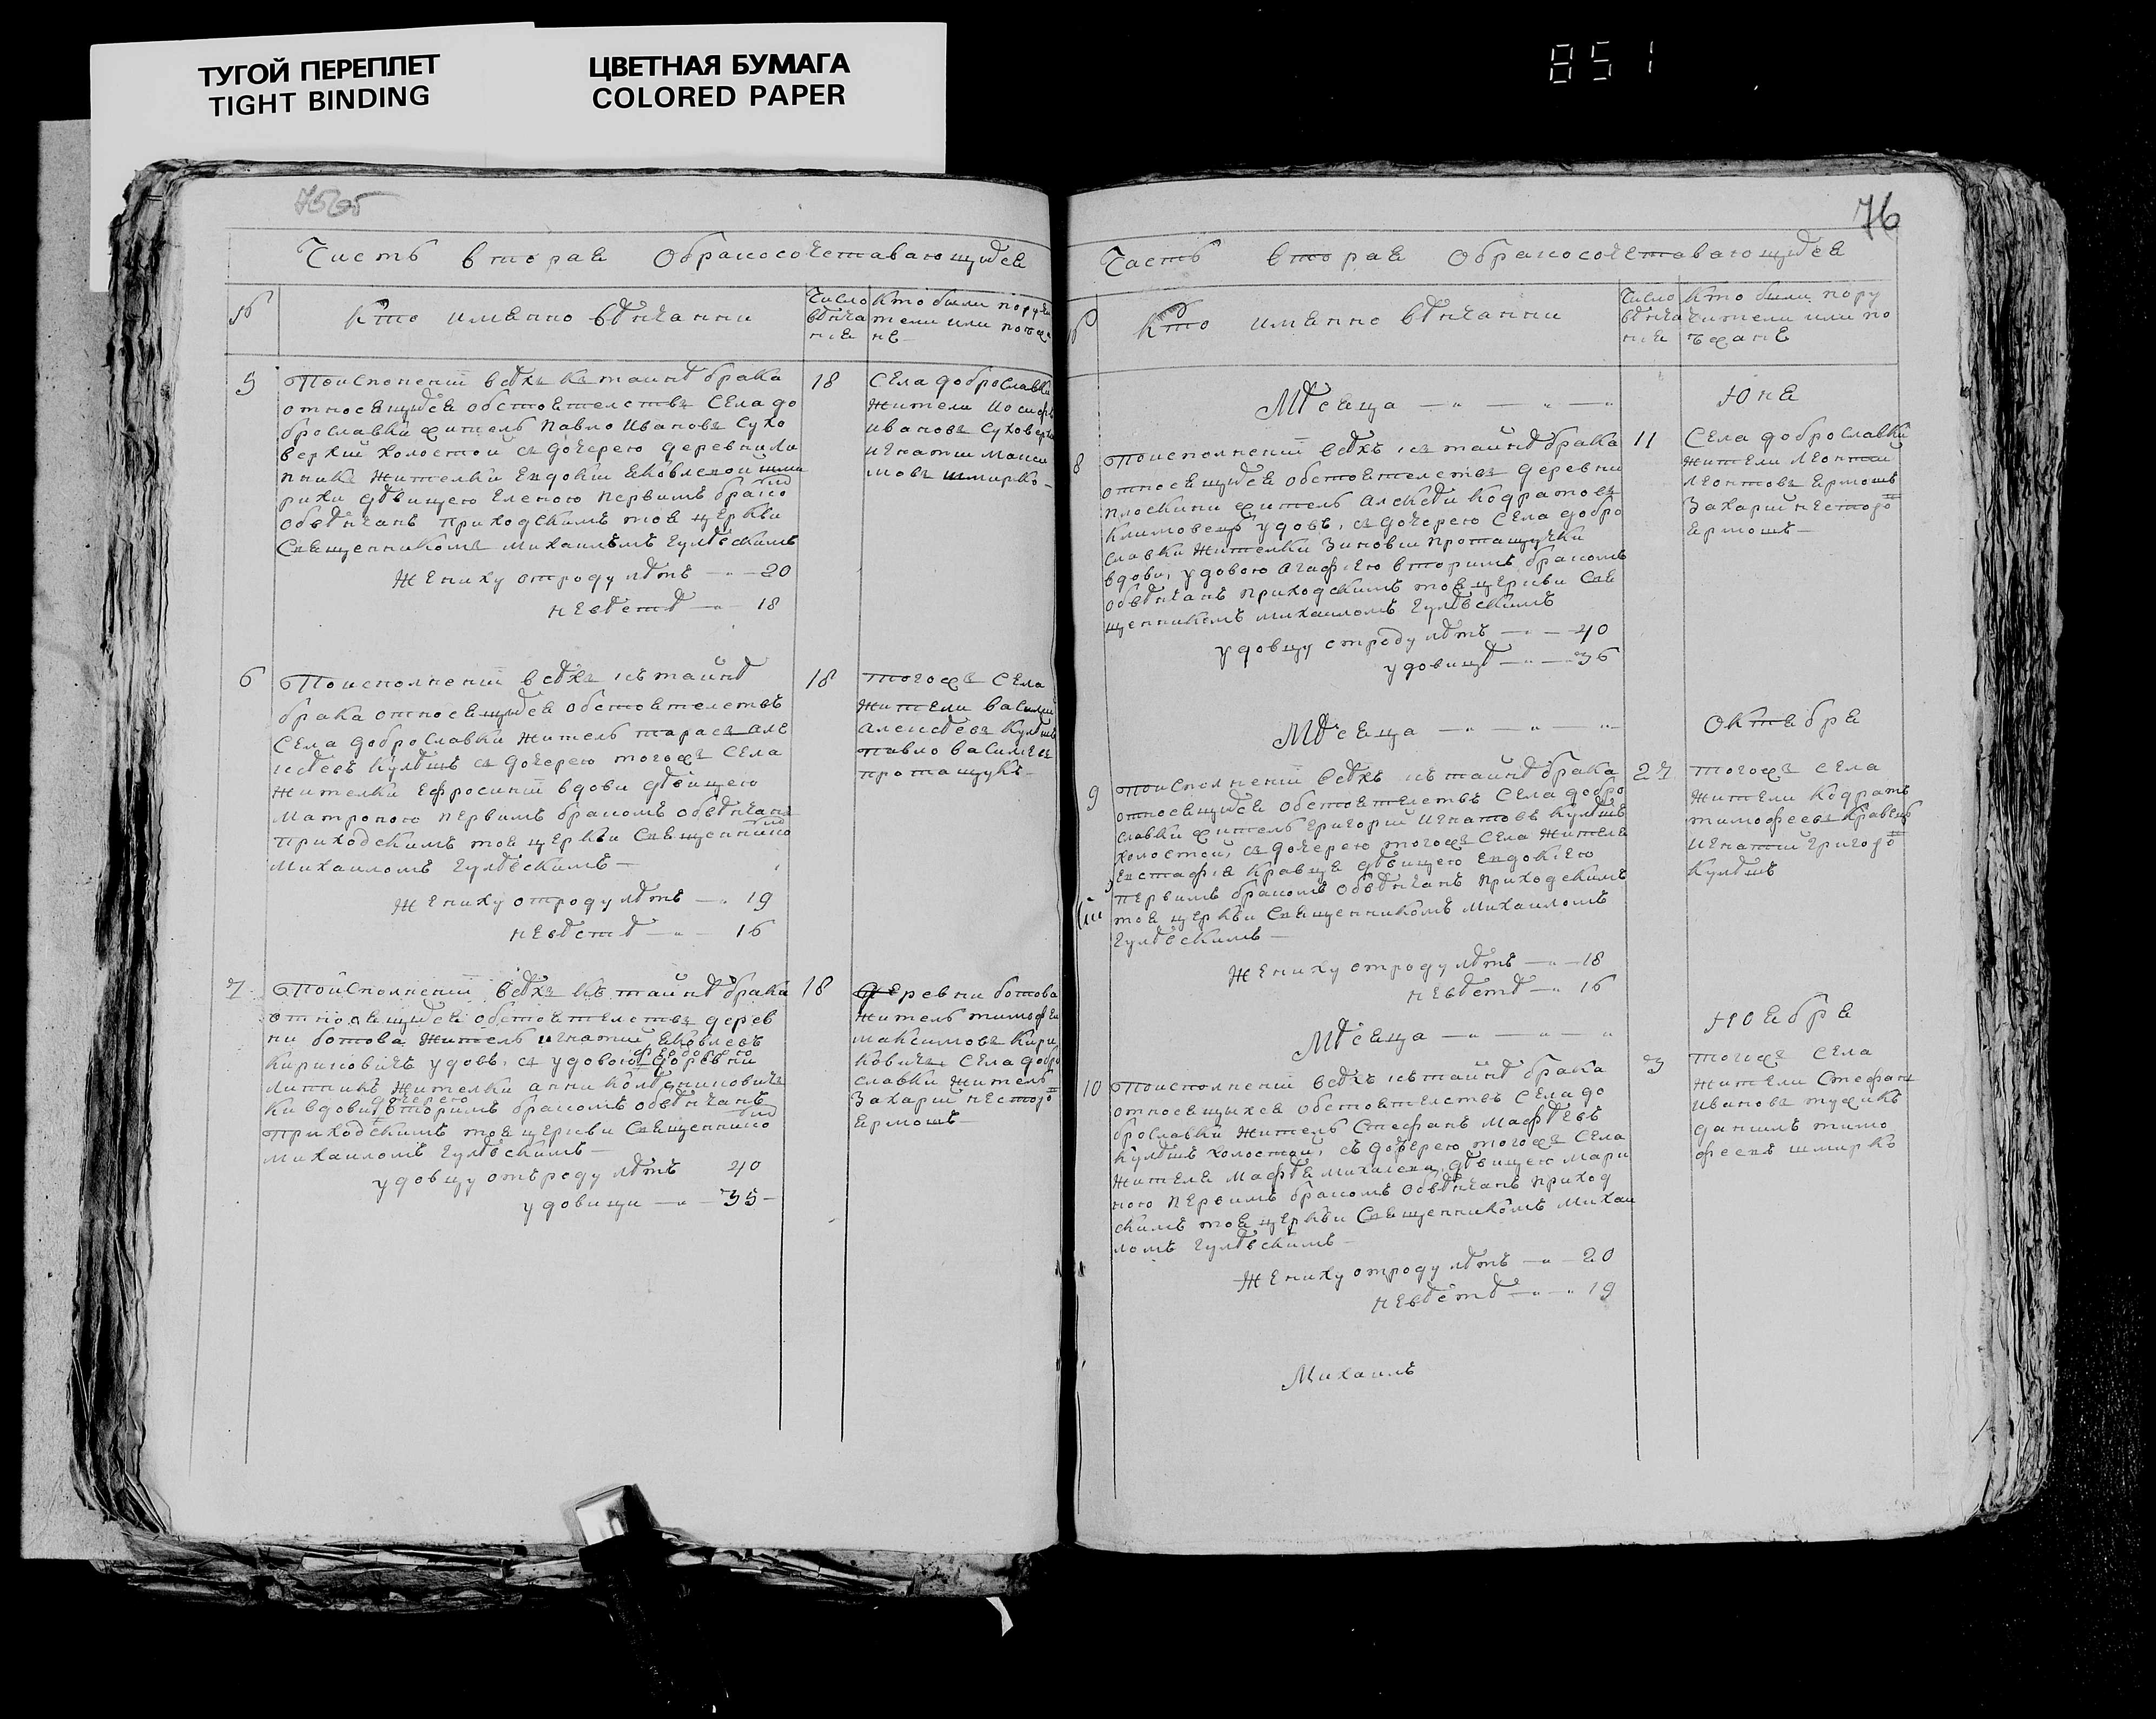 ТУГОЙ ПЕРЕПЛЕТ
TIGHT BINDING
ЦВЕТНАЯ БУМАГА
COLORED PAPER
851
75об
Часть вторая Обракосочетавающихся
№
Кто имянно вѣнчанни
Число
вѣнча
нія
Кто были поручи
тели или поѣзжа
нѣ
5
Поисполнении всѣхъ къ таинѣ брака
относящихся обстоятелствъ Села до
брославки житель Павло Ивановъ Сухо
верхий холостой съ дочерею деревни Ли
пникъ жителки Евдокіи Яковлевой шми
рихи дѣвицею Еленою первимъ бракомъ
обвѣнчанъ приходскимъ тоя церкви
Священникомъ михаиломъ Гулѣвскимъ
Жениху отроду лѣтъ — 20
невѣстѣ — 18
18
Села доброславки
жители Иосифъ
Ивановъ Суховерхи
Игнатии Макси
мовъ шмирко —
6
Поисполнении всѣхъ къ таинѣ
брака относящихся обстоятелствъ
Села доброславки житель тарасъ але
ксѣевъ Кулѣшъ съ дочерею тогожъ села
жителки Ефросинии вдови дѣвицею
Матроною первимъ бракомъ обвѣнчанъ
приходскимъ тоя церкви Священникомъ
Михаиломъ Гулѣвскимъ —
Жениху отроду лѣтъ — 19
невѣстѣ — 16
18
тогожъ Села
жители василий
Алексѣевъ Кулѣшъ
павло василіевъ
протащукъ —
7
Поисполнении всѣхъ къ таинѣ брака
относящихся обстоятелствъ дерев
ни ботова житель игнатий Яковлевъ
Кириковичъ удовъ, съ удовою деревни
Липникъ жителки анни
ки вдови дочерею вторимъ бракомъ обвѣнчанъ
приходскимъ тоя церкви Священникомъ
Михаиломъ Гулѣвскимъ —
удовцу отъроду лѣтъ 40
удовици — 35 —
18
Деревни ботова
житель тимофеи
Максимовъ Кири
ковичъ Села добро
славки житель
Захарий нестеро
Ермошъ —
76
Часть вторая Обракосочетавающихся
№
Кто имянно вѣнчанни
Число
вѣнча
нія
Кто были пору
чители или по
ѣзжанѣ
Мѣсяца — Юня
8
Поисполнении всѣхъ къ таинѣ брака
относящихся обстоятелствъ деревни
плоскини житель Алексѣи Кодратовъ
Климовецъ удовъ, съ дочерею Села добро
славки жителки Зиновии протащучки
вдови, удовою Агафіею вторимъ бракомъ
обвѣнчанъ приходскимъ тоя церкви Свя
щенникомъ михаиломъ Гулѣвскимъ
удовцу отроду лѣтъ — 40
удовицѣ — 36
11
Села доброславки
жители Леонтии
Леонтовъ Ермошъ
Захарий нестеро
Ермошъ —
Мѣсяца — Октября
9
Поисполнении всѣхъ къ таинѣ брака
относящихся обстоятелствъ Села добро
славки житель Григорий Игнатовъ Кулѣшъ
холостой, съ дочерею тогожъ Села жителя
Евстафія Кравця дѣвицею Евдокіею
первимъ бракомъ обвѣнчанъ приходскимъ
тоя церкви Священникомъ Михаиломъ
Гулѣвскимъ —
Жениху отроду лѣтъ — 18
невѣстѣ — 16
27
тогожъ села
жители Кодратъ
тимофеевъ Кравецъ
Игнатий Григоро
Кулѣшъ
Мѣсяца — Ноября
10
Поисполнении всѣхъ къ таинѣ брака
относящихся обстоятелствъ Села до
брославки житель Стефанъ Мафѣевъ
Кулѣшъ холостой, съ дочерею тогожъ Села
жителя Мафѣя дѣвицею Мари
ною первимъ бракомъ обвѣнчанъ приход
скимъ тоя церкви Священникомъ Михаи
ломъ Гулѣвскимъ —
Жениху отроду лѣтъ — 20
невѣстѣ — 19
3
тогожъ Села
жители Стефанъ
Ивановъ тужикъ
данилъ тимо
феевъ шмирко
Михаилъ